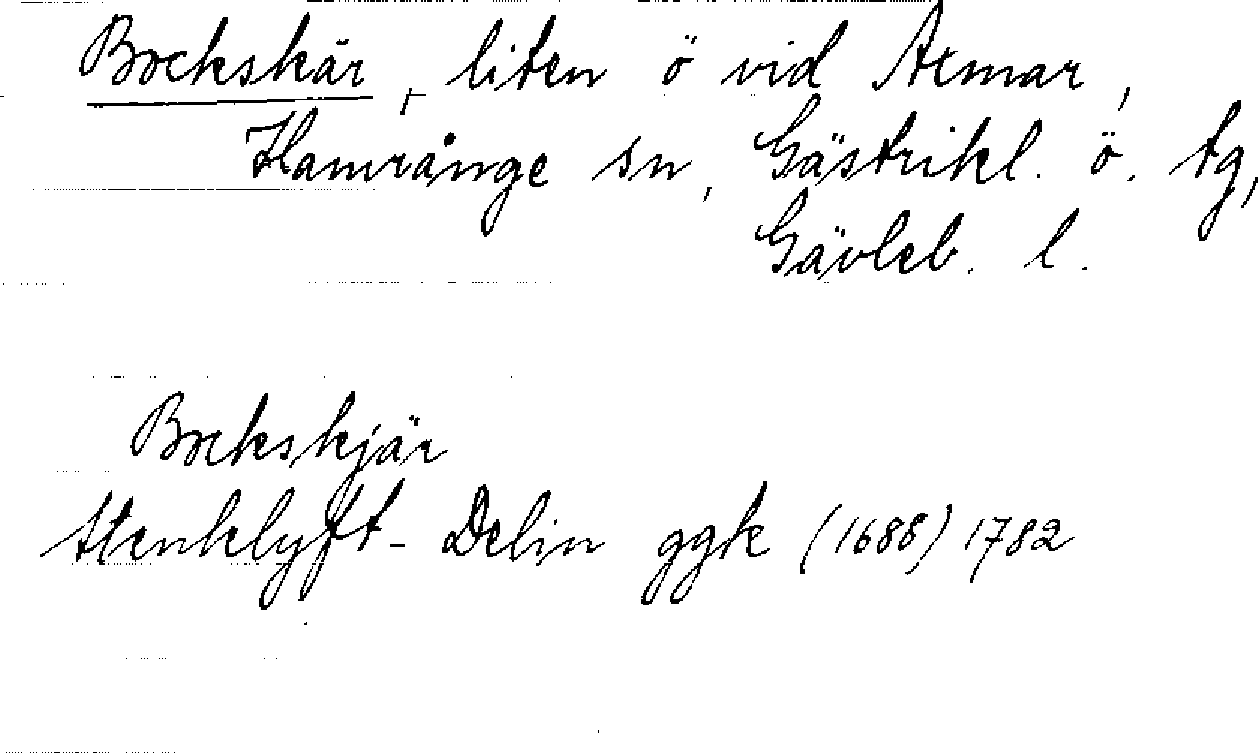 Bockskär, liten ö vid Axmar,
Hamrånge sn, Gästrikl. ö. tg,
Gävleb. l.
Bockskjär
Stenklyft - Delin ggk (1688) 1782